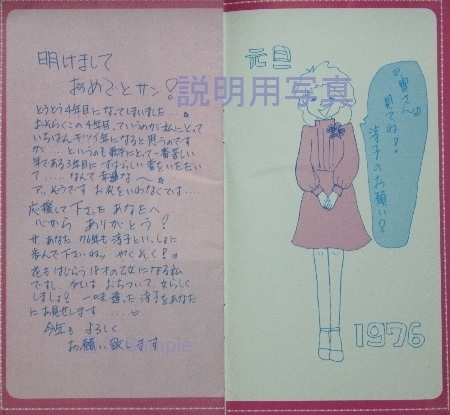 明けまして
おめでとサン!
とうとう4年目になってしまいました
おそらくこの4年目、ていうのが私にとって
いちばんキツイ年になると思うのです
が……というのも歌手にとって一番苦しい
年である3年目にすばらしい賞をいただい
て……なんて幸運な〜
ア、そうです お礼をいわなくては…
応援して下さった あなたへ
心から ありがとう!
サ あなた 76年も淳子といっしょに
歩んで下さいねッ やくそく!ヨ
花もはじらう18才の乙女になる私
ですし、今年は おちついて 女らしく
しましょ! 一味違った淳子をあなた
にお見せします……
今年も よろしく
お願い致します
元旦
『皆さんへ
見てね?!
淳子のお願い!
1976
説明用写真